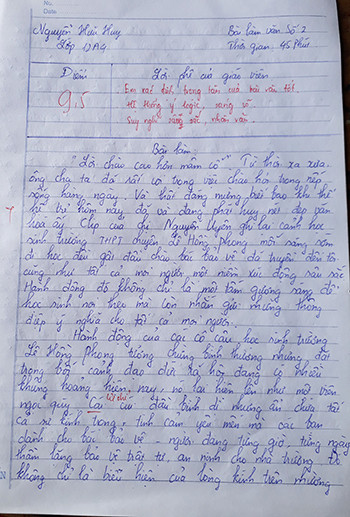 No.
Date
Nguyễn Hữu Huy
Bài làm văn Số 2
Lớp 12A4
Thời gian: 45 phút
Điểm
Lời phê của giáo viên
9,5
Em xác định trọng tâm của bài rất tốt.
Hệ thống ý logic, sáng rõ.
Suy nghĩ vững sắc, nhân văn.
Bài làm
"Lời chào cao hơn mâm cỗ". Từ thời xa xưa
ông cha ta đã rất coi trọng việc chào hỏi trong nếp
sống hàng ngày. Và thật đáng mừng biết bao khi thế
hệ trẻ hôm nay đã và đang phát huy nét đẹp văn
hoá ấy. Clip của ghi lại cảnh học
sinh trường THPT chuyên Lê Hồng Phong mỗi sáng sớm
đi học đều gật đầu chào bác bảo vệ đã truyền đến tôi
cũng như tất cả mọi người một niềm xúc động sâu sắc.
Hành động đó không chỉ là một tấm gương sáng để
học sinh noi theo mà còn nhắn gửi những thông
điệp ý nghĩa cho tất cả mọi người.
Hành động của các cô cậu học sinh trường
Lê Hồng Phong tưởng chừng bình thường nhưng đặt
trong bối cảnh đạo đức xã hội đang có nhiều
khủng hoảng hiện nay, nó lại hiện lên như một viên
ngọc quý. Cái cúi đầu bình dị nhưng ẩn chứa tất
cả sự kính trọng, tình cảm yêu mến mà các bạn
dành cho bác bảo vệ - người đang từng giờ, từng ngày
thầm lặng bảo vệ trật tự, an ninh cho nhà trường. Đó
không chỉ là biểu hiện của lòng kính trên nhường